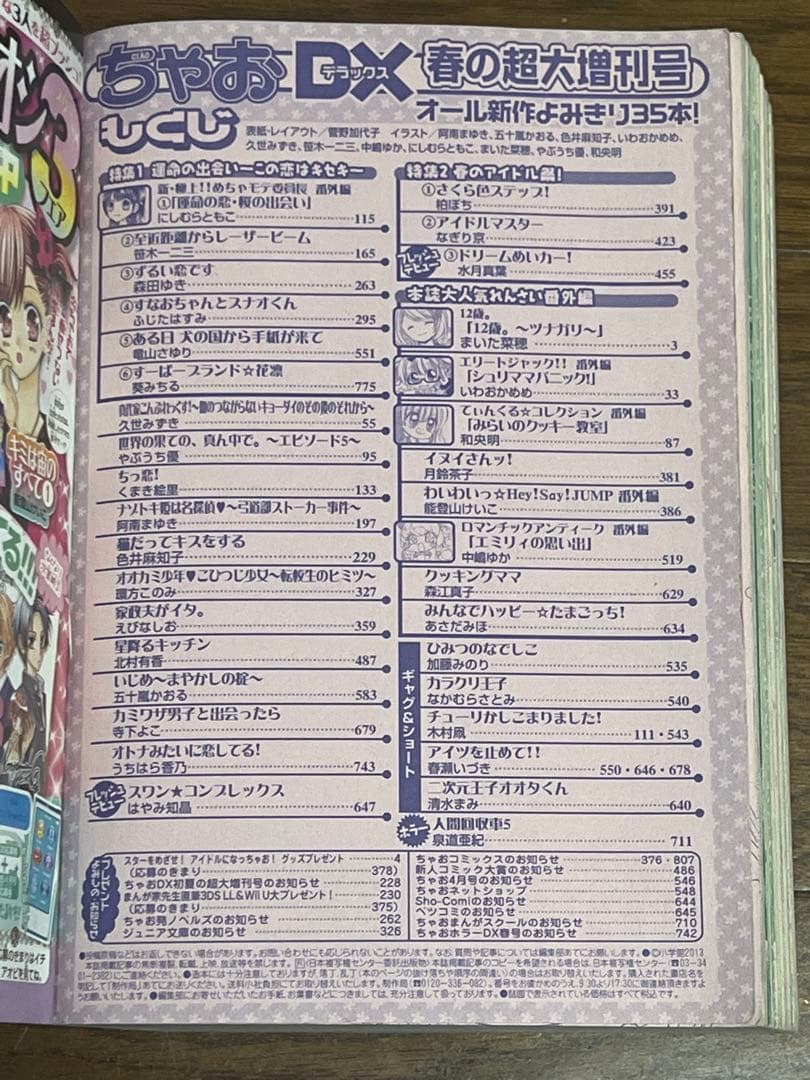 な3人を
オシ3
キミは宙のすべて①
てる!!!
募のきまりはイチ
アオビを見てね。
CIAO
ちゃお DX デラックス 春の超大増刊号
オール新作よみきり35本!
もくじ
表紙・レイアウト/菅野加代子 イラスト/阿南まゆき、五十嵐かおる、色井麻知子、いわおかめめ、
久世みずき、笹木一二三、中嶋ゆか、にしむらともこ、まいた菜穂、やぶうち優、和央明
特集1 運命の出会い―この恋はキセキ―
新・極上!!めちゃモテ委員長 番外編
①「運命の恋・桜の出会い」
にしむらともこ 115
②至近距離からレーザービーム
笹木一二三 165
③ずるい恋です
森田ゆき 263
④すなおちゃんとスナオくん
ふじたはすみ 295
⑤ある日 犬の国から手紙が来て
竜山さゆり 551
⑥すーぱーブランド☆花凛
葵みちる 775
久世みずき 55
世界の果ての、真ん中で。～エピソード5～
やぶうち優 95
ちっ恋!
くまき絵里 133
ナゾトキ姫は名探偵♥～弓道部ストーカー事件～
阿南まゆき 197
猫だってキスをする
色井麻知子 229
オオカミ少年♥こひつじ少女～転校生のヒミツ～
環方このみ 327
家政夫がイタ。
えびなしお 359
星降るキッチン
北村有香 487
いじめ～まやかしの掟～
五十嵐かおる 583
カミワザ男子と出会ったら
寺下よこ 679
オトナみたいに恋してる!
うちはら香乃 743
フレッシュデビュー スワン★コンプレックス
はやみ知晶 647
特集2 春のアイドル祭!
①さくら色ステップ!
柏ぽち 391
②アイドルマスター
なぎり京 423
フレッシュデビュー ③ドリームめいカー!
水月真葉 455
本誌大人気れんさい番外編
12歳。
「12歳。～ツナガリ～」
まいた菜穂 3
エリートジャック!! 番外編
「シュリママパニック!」
いわおかめめ 33
てぃんくる☆コレクション 番外編
「みらいのクッキー教室」
和央明 87
イヌイさんッ!
月鈴茶子 381
わいわいっ☆Hey!Say!JUMP 番外編
能登山けいこ 386
ロマンチックアンティーク 番外編
「エミリィの思い出」
中嶋ゆか 519
クッキングママ
森江真子 629
みんなでハッピー☆たまごっち!
あさだみほ 634
ギャグ&ショート
ひみつのなでしこ
加藤みのり 535
カラクリ王子
なかむらさとみ 540
チューリかしこまりました!
木村凪 111・543
アイツを止めて!!
春瀬いづき 550・646・678
二次元王子オオタくん
清水まみ 640
ホラー 人間回収車5
泉道亜紀 711
プレゼント よみもの・お知らせ
スターをめざせ! アイドルになっちゃお! グッズプレゼント 4
(応募のきまり 378)
ちゃおDX初夏の超大増刊号のお知らせ 228
まんが家先生直筆3DS LL&Wii U大プレゼント! 230
(応募のきまり 375)
ちゃお発ノベルズのお知らせ 262
ジュニア文庫のお知らせ 326
ちゃおコミックスのお知らせ 376・807
新人コミック大賞のお知らせ 486
ちゃお4月号のお知らせ 546
ちゃおネットショップ 548
Sho-Comiのお知らせ 644
ベツコミのお知らせ 645
ちゃおまんがスクールのお知らせ 710
ちゃおホラーDX春号のお知らせ 742
●投稿原稿などはお返しできない場合があります。お問い合わせにも応じられないことがあります。なお、質問や記事については編集部あてにお願いします。●©小学館2013
本誌掲載記事の無断複製、転載、上映、放送等を禁じます。